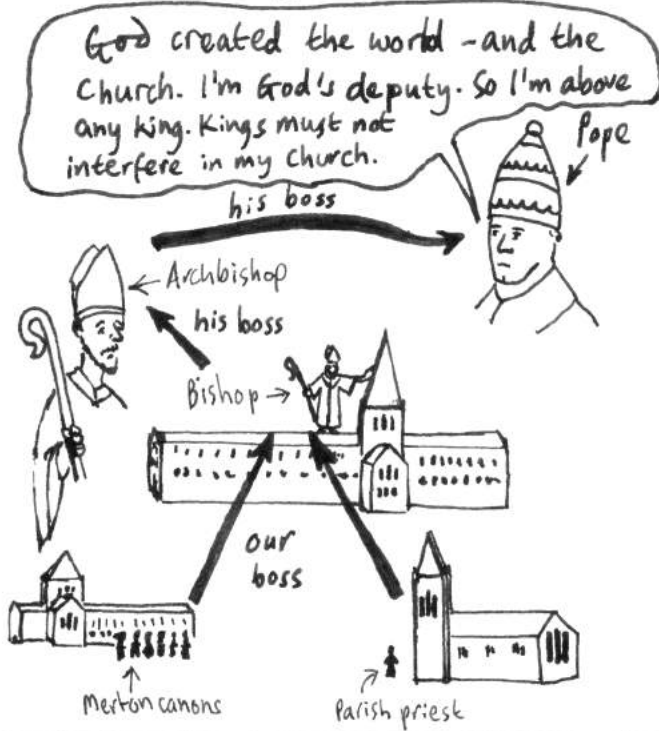 God created the world - and the
Church. I'm God's deputy. So I'm above
any king. Kings must not
interfere in my Church.
Pope
his boss
Archbishop
his boss
Bishop
our
boss
Merton canons
Parish priest